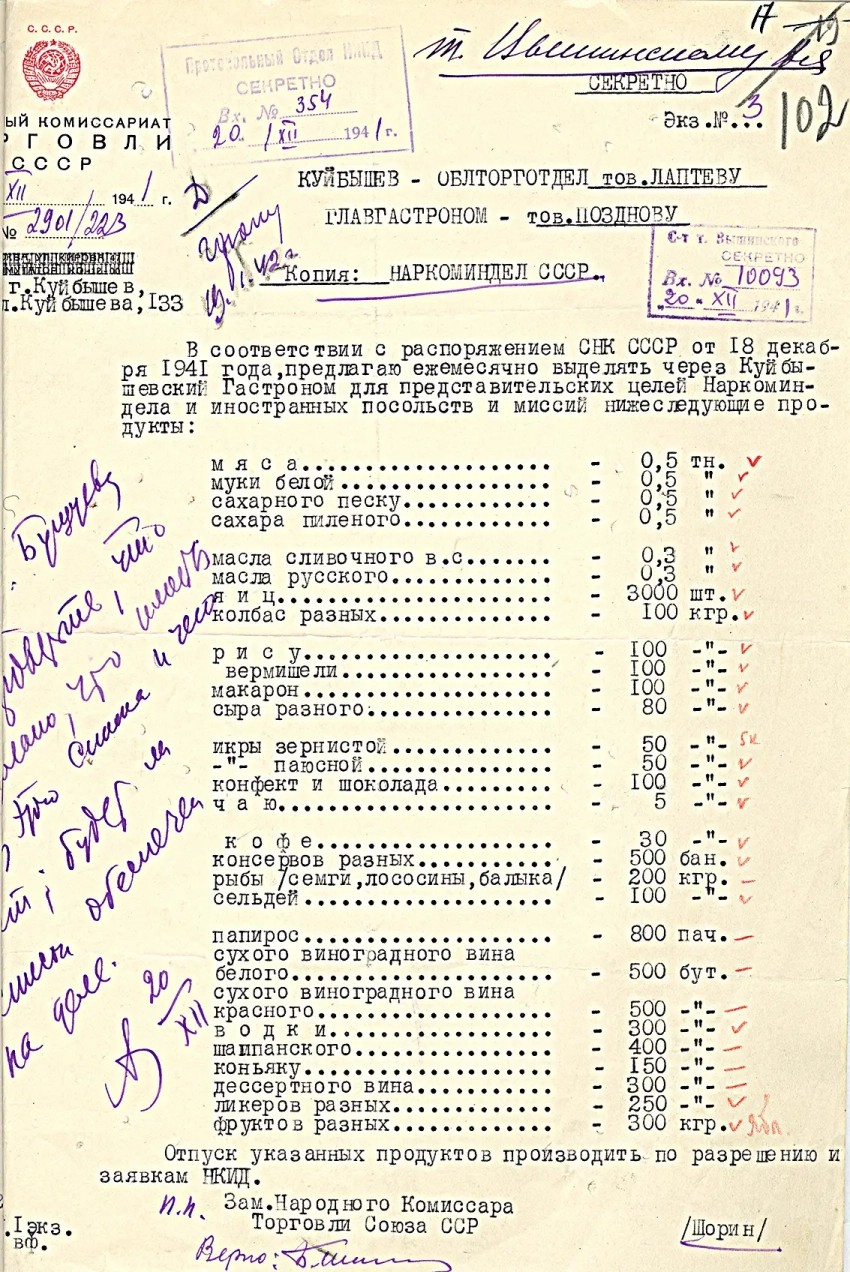 С.С.С.Р.
ЫЙ КОМИССАРИАТ
РГОВЛИ
СССР
XII 1941 г.
№ 2901/223
г.Куйбышев,
л.Куйбышева,133
Протокольный Отдел НКИД
СЕКРЕТНО
Вх. № 354
20 /XII 1941 г.
17
т. Вышинскому
СЕКРЕТНО
Экз.№..3
102
КУЙБЫШЕВ - ОБЛТОРГОТДЕЛ тов.ЛАПТЕВУ
ГЛАВГАСТРОНОМ - тов.ПОЗДНОВУ
Копия: НАРКОМИНДЕЛ СССР.
19.I.42г
С-т т. Вышинского
СЕКРЕТНО
Вх. № 10093
"20" XII 1941 г.
В соответствии с распоряжением СНК СССР от 18 декаб-
ря 1941 года,предлагаю ежемесячно выделять через Куйбы-
шевский Гастроном для представительских целей Наркомин-
дела и иностранных посольств и миссий нижеследующие про-
дукты:
м я с а...................... - 0,5 тн.
муки белой................... - 0,5 "
сахарного песку.............. - 0,5 "
сахара пиленого.............. - 0,5 "
масла сливочного в.с....... - 0,3 "
масла русского............... - 0,3 "
я и ц........................ - 3000 шт.
колбас разных................ - 100 кгр.
р и с у...................... - 100 -"-
вермишели.................... - 100 -"-
макарон...................... - 100 -"-
сыра разного................. - 80 -"-
икры зернистой............... - 50 -"-
-"- паюсной.................. - 50 -"-
конфект и шоколада.......... - 100 -"-
ч а ю........................ - 5 -"-
к о ф е...................... - 30 -"-
консервов разных............. - 500 бан.
рыбы /семги,лососины,балыка/ - 200 кгр.
сельдей...................... - 100 -"-
папирос...................... - 800 пач.
сухого виноградного вина
белого....................... - 500 бут.
сухого виноградного вина
красного..................... - 500 -"-
в о д к и.................... - 300 -"-
шампанского.................. - 400 -"-
коньяку...................... - 150 -"-
дессертного вина............. - 300 -"-
ликеров разных............... - 250 -"-
фруктов разных............... - 300 кгр.
Отпуск указанных продуктов производить по разрешению и
заявкам НКИД.
п.п. Зам.Народного Комиссара
Торговли Союза ССР /Шорин/
.1экз.
вф.
Верно:
что
что
и чего
будет ли
на деле.
20
XII